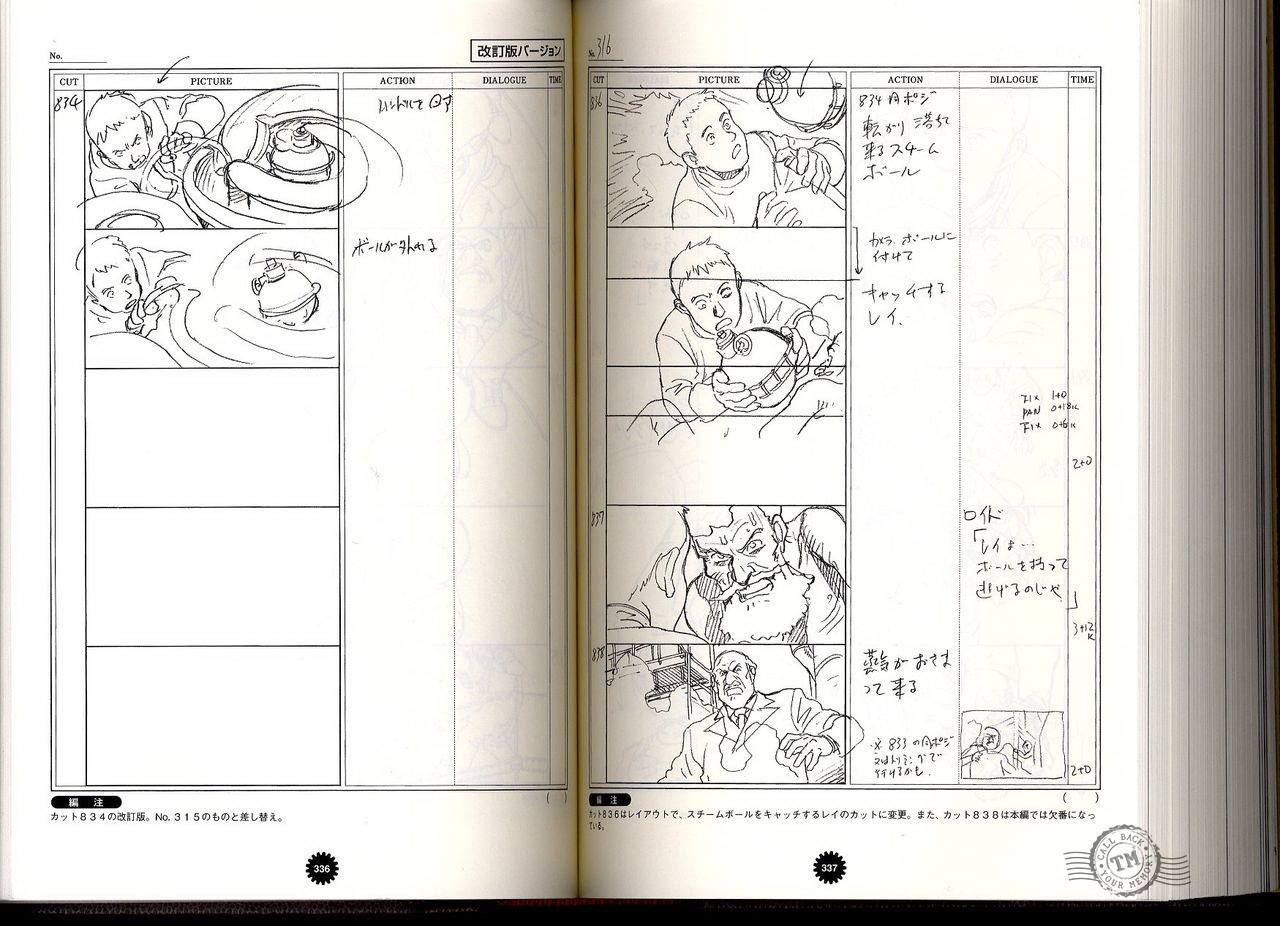 No.
改訂版バージョン
CUT
PICTURE
ACTION
DIALOGUE
TIME
834
ハンドルを回す
ボールが外れる
編 注
カット834の改訂版。No. 315のものと差し替え。
( )
336
No. 316
CUT
PICTURE
ACTION
DIALOGUE
TIME
836
834 同ポジ
転がり落ちて
来るスチーム
ボール
カメラ、ボールに
付けて
キャッチする
レイ.
FIX 1+0
PAN 0+18K
FIX 0+6K
2+0
837
ロイド
「レイよ…
ボールを持って
逃げるのじゃ」
3+12
K
838
蒸気がおさま
って来る
※ 833の同ポジ
2+0
( )
編 注
カット836はレイアウトで、スチームボールをキャッチするレイのカットに変更。また、カット838は本編では欠番になっ
ている。
337
CALL BACK
TM
YOUR MEMORY